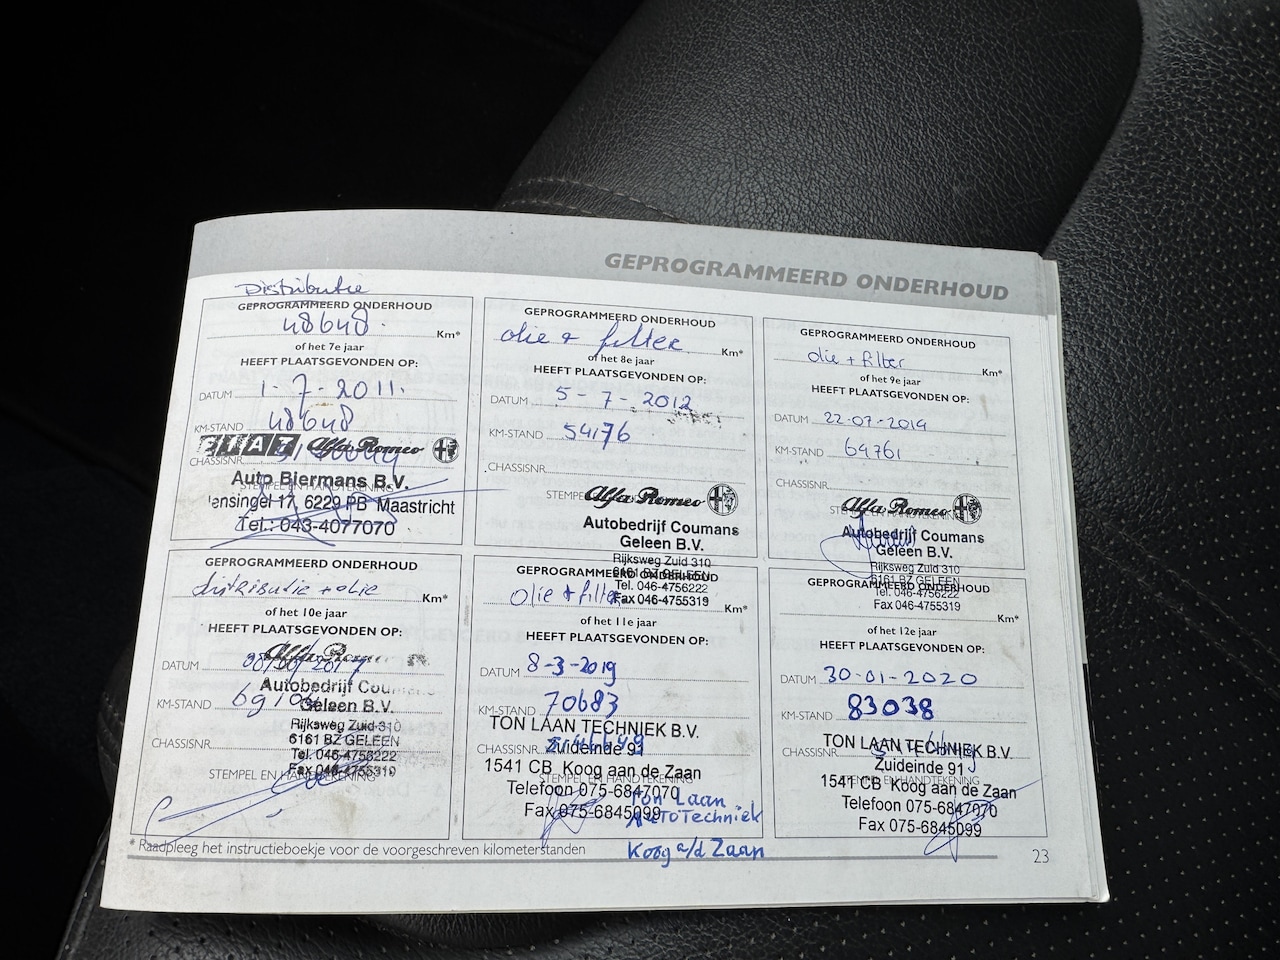 GEPROGRAMMEERD ONDERHOUD
Distributie
GEPROGRAMMEERD ONDERHOUD
48648 Km*
of het 7e jaar
HEEFT PLAATSGEVONDEN OP:
DATUM 1-7-2011.
KM-STAND 48648
FIAT Alfa Romeo
CHASSISNR.
Auto Biermans B.V.
STEMPEL EN HANDTEKENING
ensingel 17, 6229 PB Maastricht
Tel.: 043-4077070
GEPROGRAMMEERD ONDERHOUD
olie + filter Km*
of het 8e jaar
HEEFT PLAATSGEVONDEN OP:
DATUM 5-7-2012
KM-STAND 54176
CHASSISNR.
STEMPE Alfa Romeo
Autobedrijf Coumans
Geleen B.V.
Rijksweg Zuid 310
6161 BZ GELEEN
Tel. 046-4756222
Fax 046-4755319
GEPROGRAMMEERD ONDERHOUD
olie + filter Km*
of het 9e jaar
HEEFT PLAATSGEVONDEN OP:
DATUM 22-07-2014
KM-STAND 64761
CHASSISNR.
Alfa Romeo
STEMPEL EN HANDTEKENING
Autobedrijf Coumans
Geleen B.V.
Rijksweg Zuid 310
6161 BZ GELEEN
Tel. 046-4756222
Fax 046-4755319
GEPROGRAMMEERD ONDERHOUD
distributie + olie Km*
of het 10e jaar
HEEFT PLAATSGEVONDEN OP:
Alfa Romeo
DATUM
Autobedrijf Coumans
KM-STAND
Geleen B.V.
Rijksweg Zuid 310
CHASSISNR. 6161 BZ GELEEN
Tel. 046-4756222
Fax 046-4755319
STEMPEL EN HANDTEKENING
GEPROGRAMMEERD ONDERHOUD
Olie + filter Km*
of het 11e jaar
HEEFT PLAATSGEVONDEN OP:
DATUM 8-3-2019
KM-STAND 70683
TON LAAN TECHNIEK B.V.
CHASSISNR. Zuideinde 91
1541 CB Koog aan de Zaan
STEMPEL EN HANDTEKENING
Telefoon 075-6847070
Fax 075-6845099
Ton Laan
AutoTechniek
Koog a/d Zaan
GEPROGRAMMEERD ONDERHOUD
Km*
of het 12e jaar
HEEFT PLAATSGEVONDEN OP:
DATUM 30-01-2020
KM-STAND 83038
TON LAAN TECHNIEK B.V.
CHASSISNR.
Zuideinde 91
STEMPEL EN HANDTEKENING
1541 CB Koog aan de Zaan
Telefoon 075-6847070
Fax 075-6845099
* Raadpleeg het instructieboekje voor de voorgeschreven kilometerstanden
23